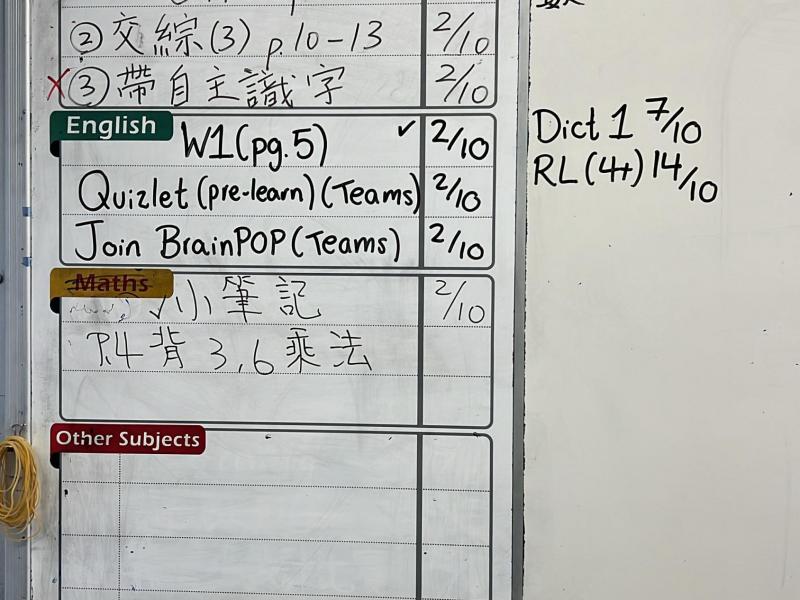 ② 交綜(3) p.10-13 2/10
X ③ 帶自主識字 2/10
English
W1(pg.5) ✓ 2/10
Quizlet (pre-learn) (Teams) 2/10
Join BrainPOP (Teams) 2/10
Maths
√小筆記 2/10
P.4 背 3,6 乘法
Other Subjects
Dict 1 7/10
RL (4+) 14/10